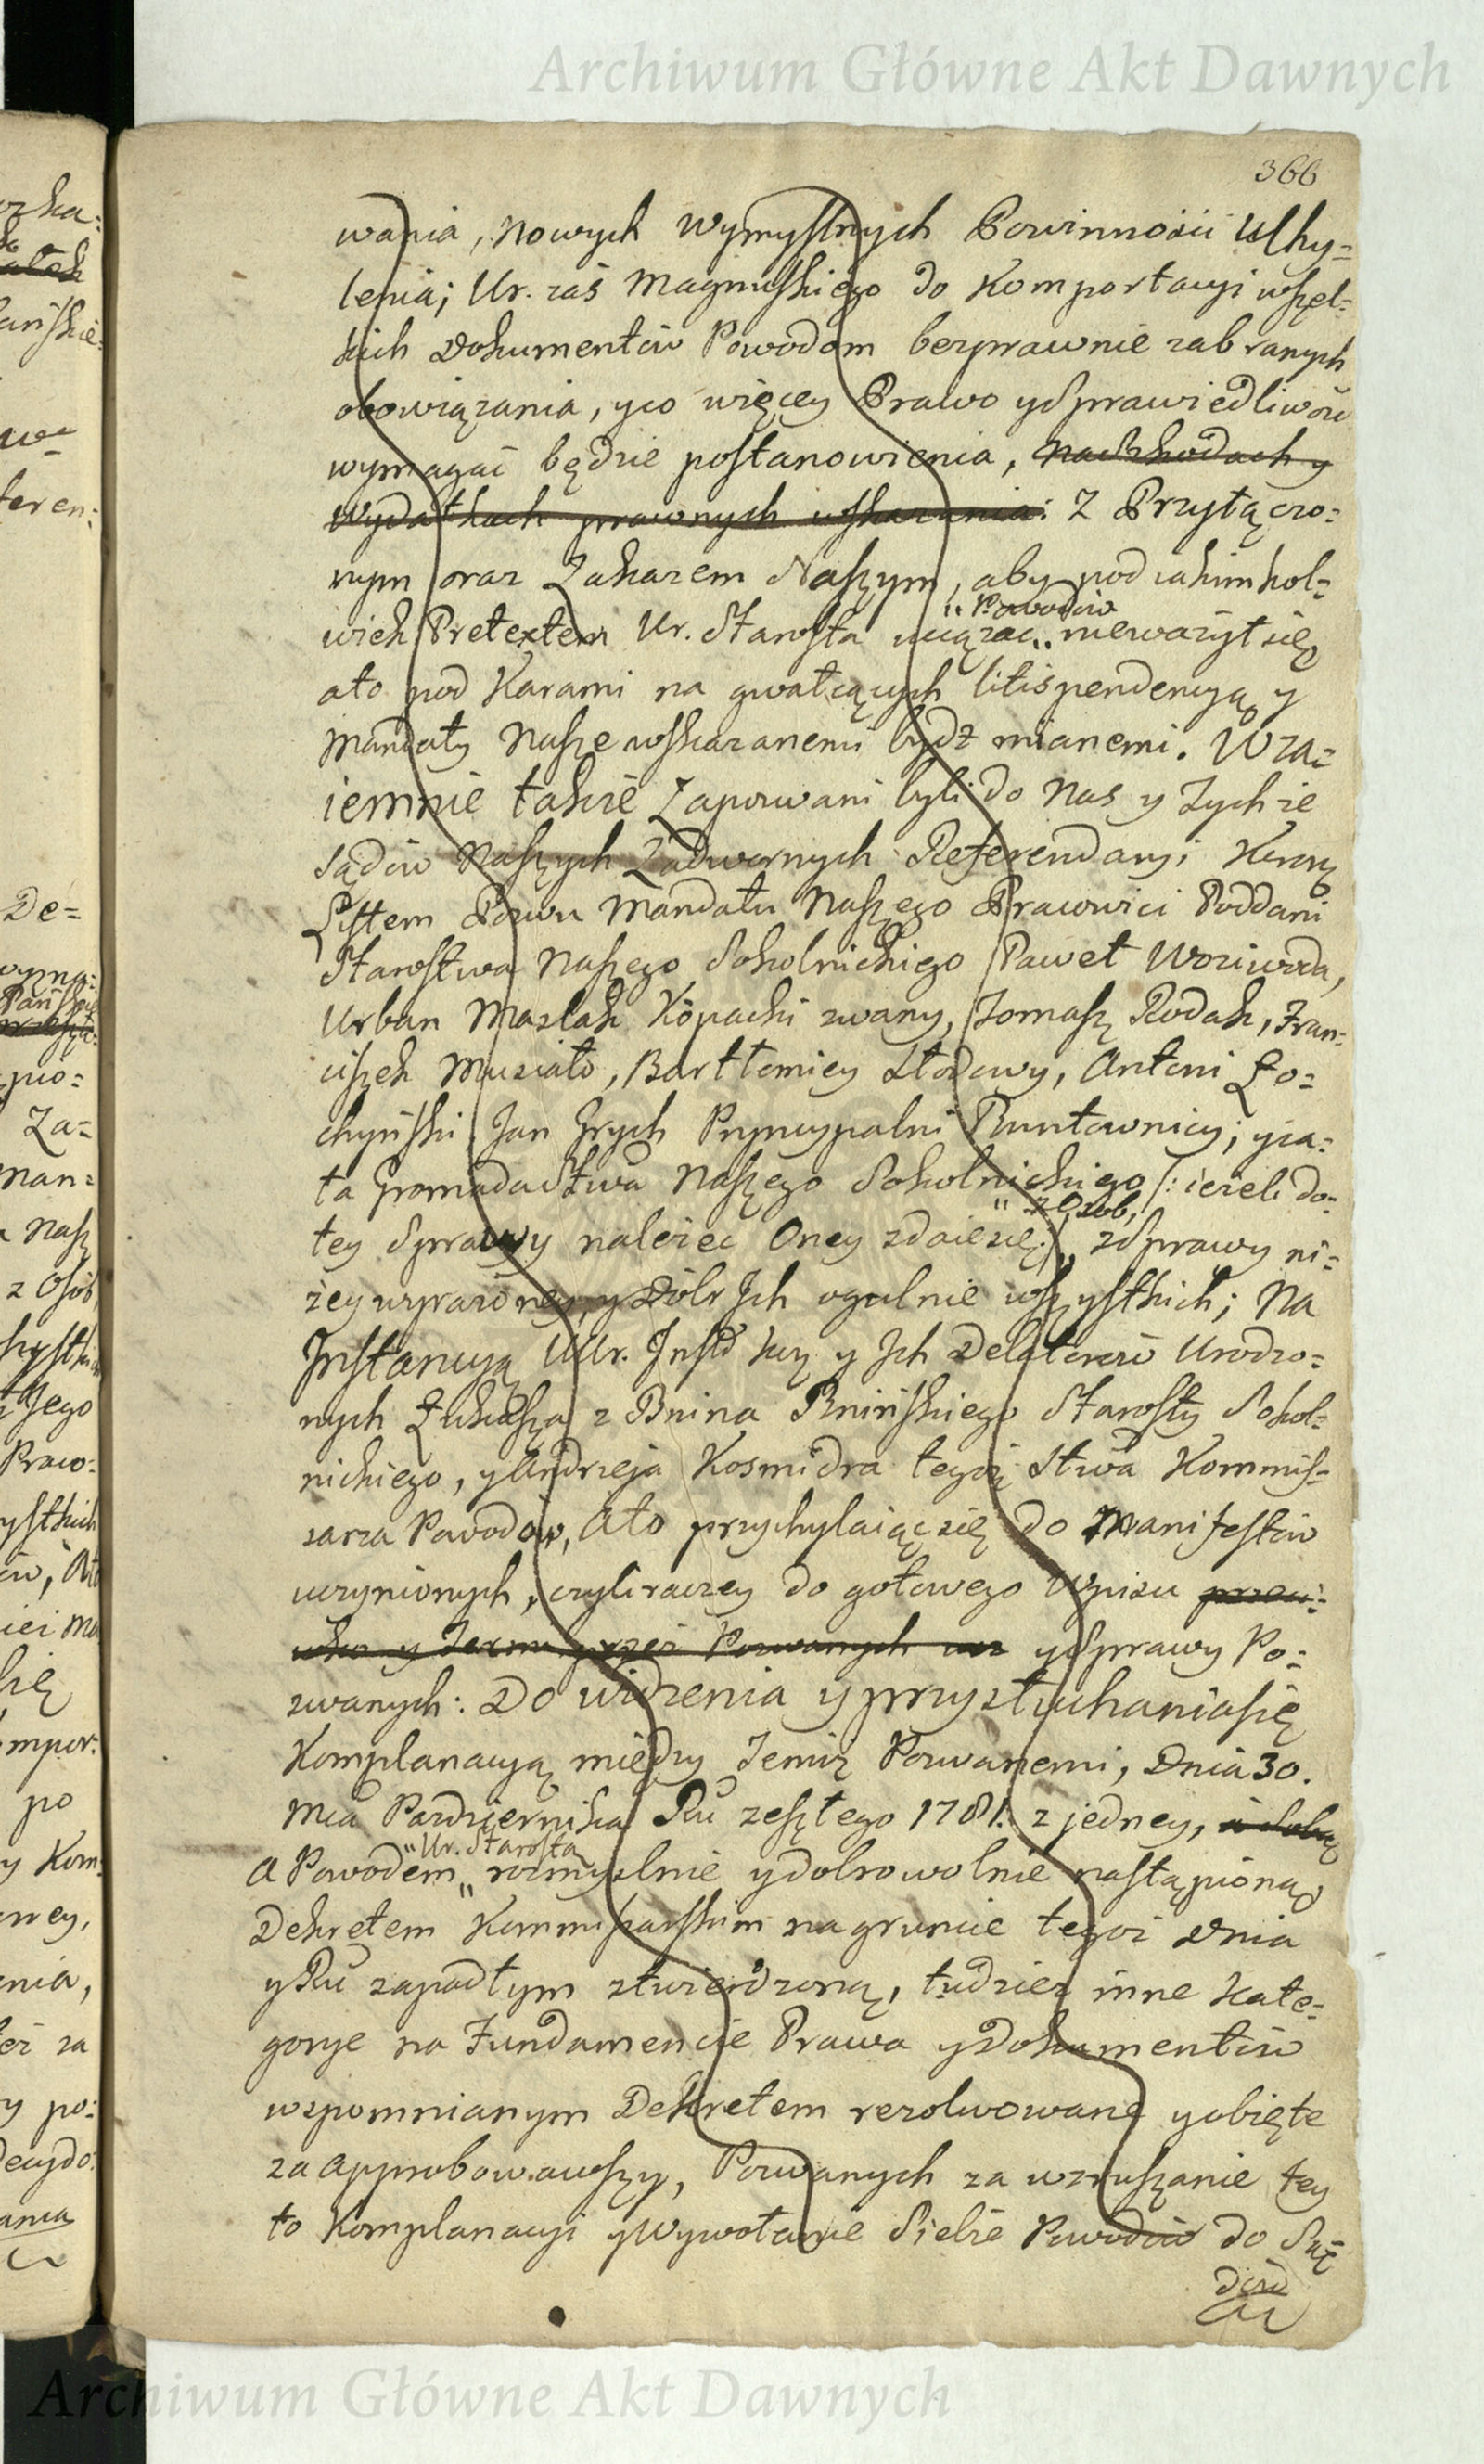 Archiwum Główne Akt Dawnych
366
wania, nowych wymyslnych Powinnosci Uchy=
lenia; Ur. zaś Magnuskiego do Komportacyi wszel=
kich Dokumentów Powodom bezprawnie zabranych
obowiązania, y co więcey Prawo y Sprawiedliwość
wymagać będzie postanowienia, na Szkodach y
wydatkach prawnych wskazania: Z Przyłączo=
nym oraz Zakazem Naszym, aby pod iakimkol=
" Powodów
wiek Pretextem Ur. Starosta uciązac " niewazył się
a to pod Karami na gwałcących litispendencyą y
Mandaty Nasze wskazanemi bydź mianemi. Wza=
iemnie także Zapozwani byli do Nas y Tychże
Sądów Naszych Zadwornych Referendaryi Korony
Listem Pozwu Mandatu Naszego Pracowici Poddani
Starostwa Naszego Sokolnickiego Paweł Woziwoda,
Urban Maślak Kopacki zwany, Tomasz Rodak, Fran=
ciszek Musiało, Bartłomiey Słodowy, Antoni Ło=
chyński Jan Grych Pryncypalni Buntownicy; y ca=
ła Gromada Stwa Naszego Sokolnickiego /: ieżeli do=
" z Osob,
tey Sprawy należeć Oney zdaie się :/ " z Sprawy ni=
żey wyrażoney, y Dóbr Ich ogulnie wszystkich; Na
Instancyą UUr. Instd kcy y Ich Delatorów Urodzo=
nych Łukasza z Bnina Bnińskiego Starosty Sokol=
nickiego, y Andrzeja Kosmidra tegoż Stwa Kommis=
sarza Powodów, A to przychylaiąc się do Manifestów
uczynionych, czyli raczey do gotowego Wpisu przeci=
wko y Termu przez Pozwanych y Sprawy Po=
zwanych: Do widzenia y przysłuchania się
Komplanacyą między Temiż Pozwanemi, Dnia 30.
Mca Pazdziernika Ru zeszłego 1781. z jedney, a sobą
" Ur. Starostą
A Powodem " rozmyslnie y dobrowolnie nastąpioną
Dekretem Kommissarskim na gruncie tegoż Dnia
y Ru zapadłym stwierdzoną, tudziez inne Kate=
gorye na Fundamencie Prawa y Dokumentów
wspomnianym Dekretem rezolwowane y obięte
zaapprobowawszy, Pozwanych za wzruszanie tey
to Komplanacyi y Wywołanie Siebie Powodów do Są=
dów
Archiwum Główne Akt Dawnych